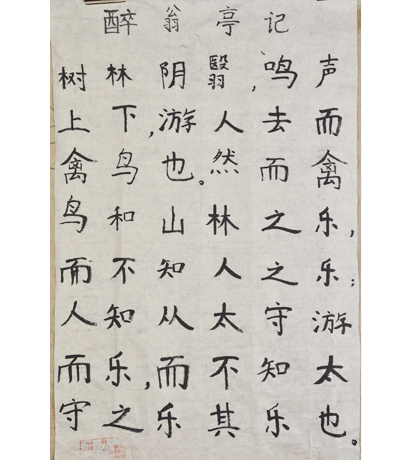 醉翁亭记
树林阴翳,鸣声
上下,游人去而
禽鸟也。然而禽
鸟和山林之乐,
而不知人之乐;
人知从太守游
而乐,而不知太
守之乐其乐也。